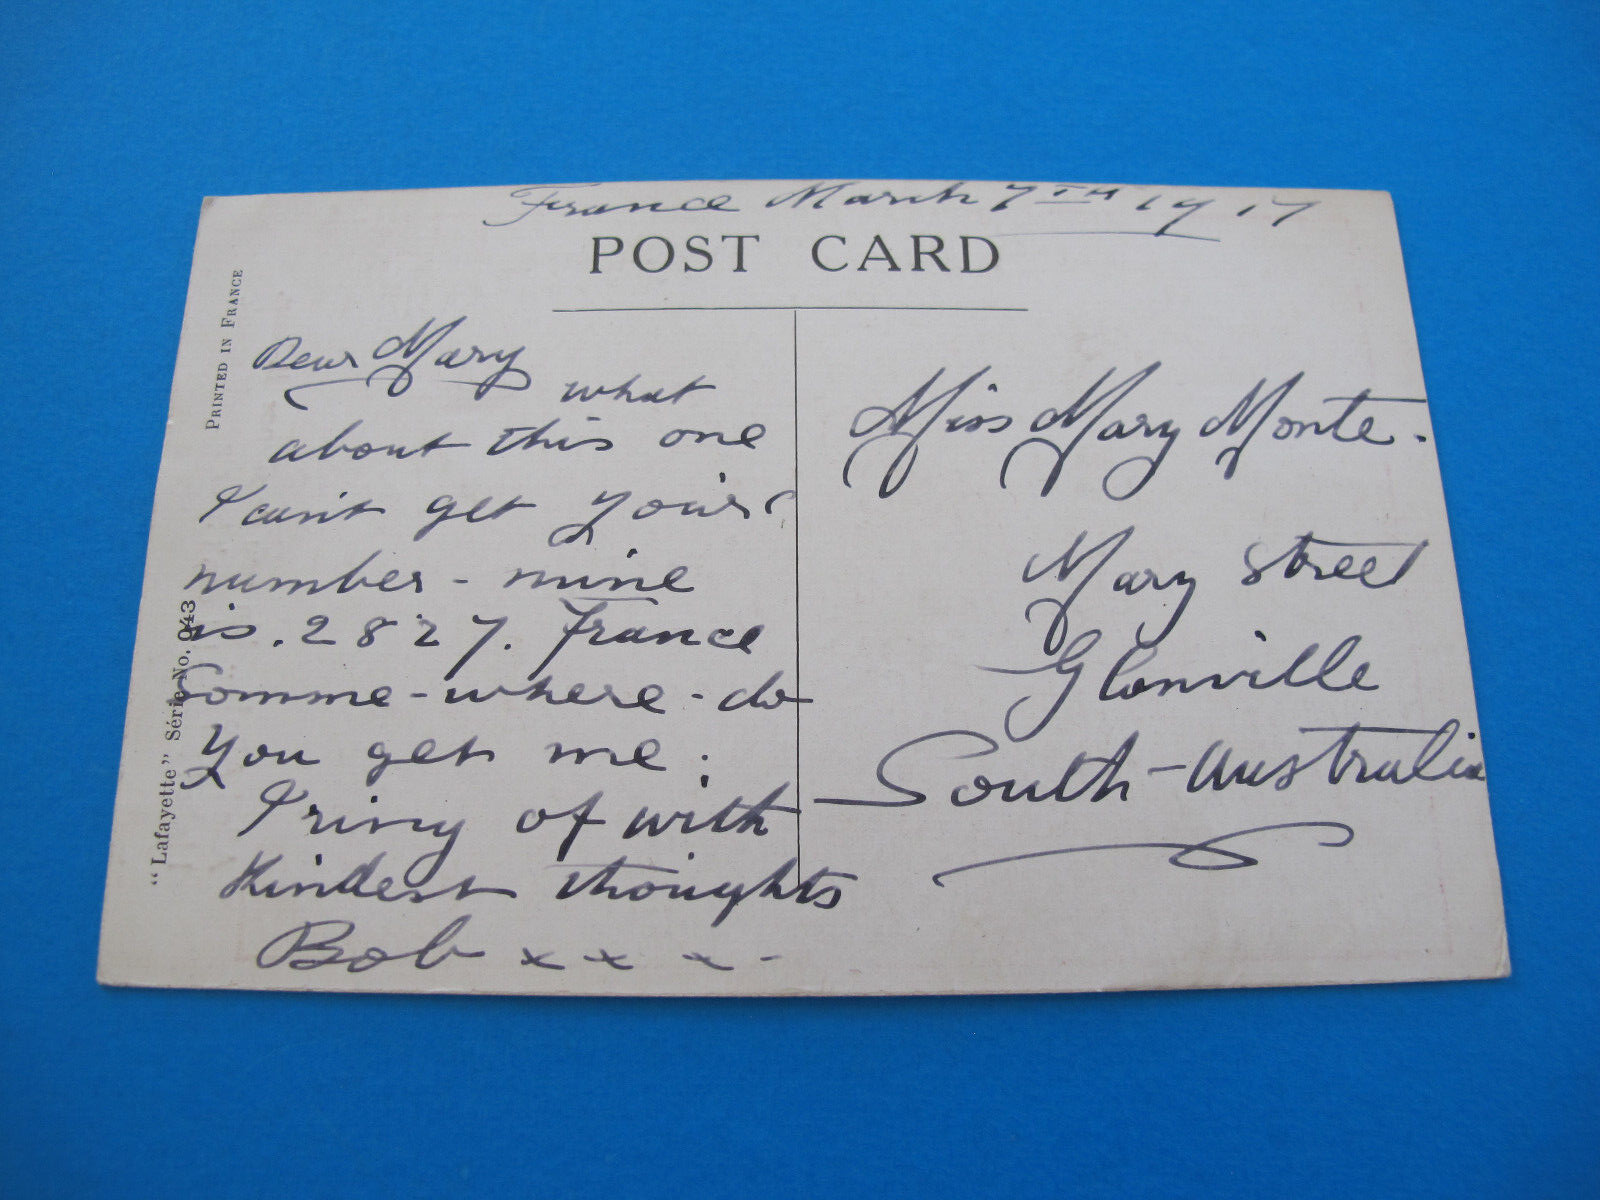 France March 7TH 1917
POST CARD
PRINTED IN FRANCE
"Lafayette" Série No. 043
Dear Mary
what
about this one
I can't get your
number - mine
is. 2827. France
Somme-where-do
you get me.
I ring of with
Kindest thoughts
Bob x x x -
Miss Mary Monte.
Mary Street
Glanville
South-Australia